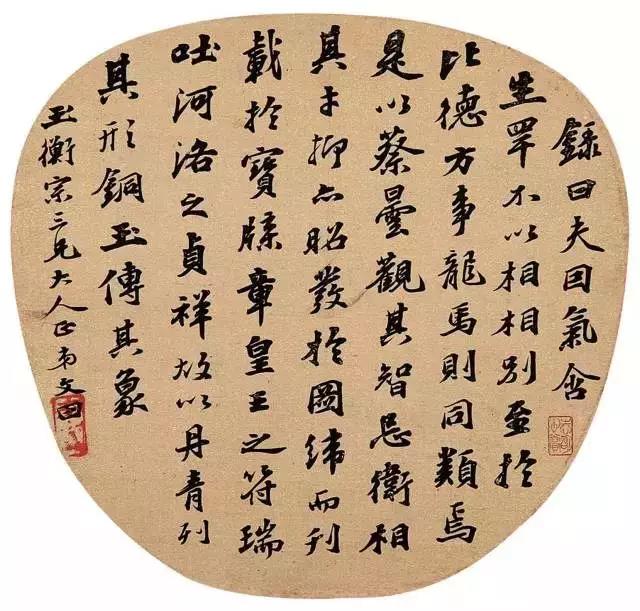 録曰夫因氣含
生罕不以相相別至於
比德方事龍馬則同類焉
是以蔡曇觀其智忌衛相
其才抑亦昭發於圖緯而刊
載於寶牒章皇王之符瑞
吐河洛之貞祥故以丹青列
其形銅玉傳其象
玉衡宗三兄大人正弟文田